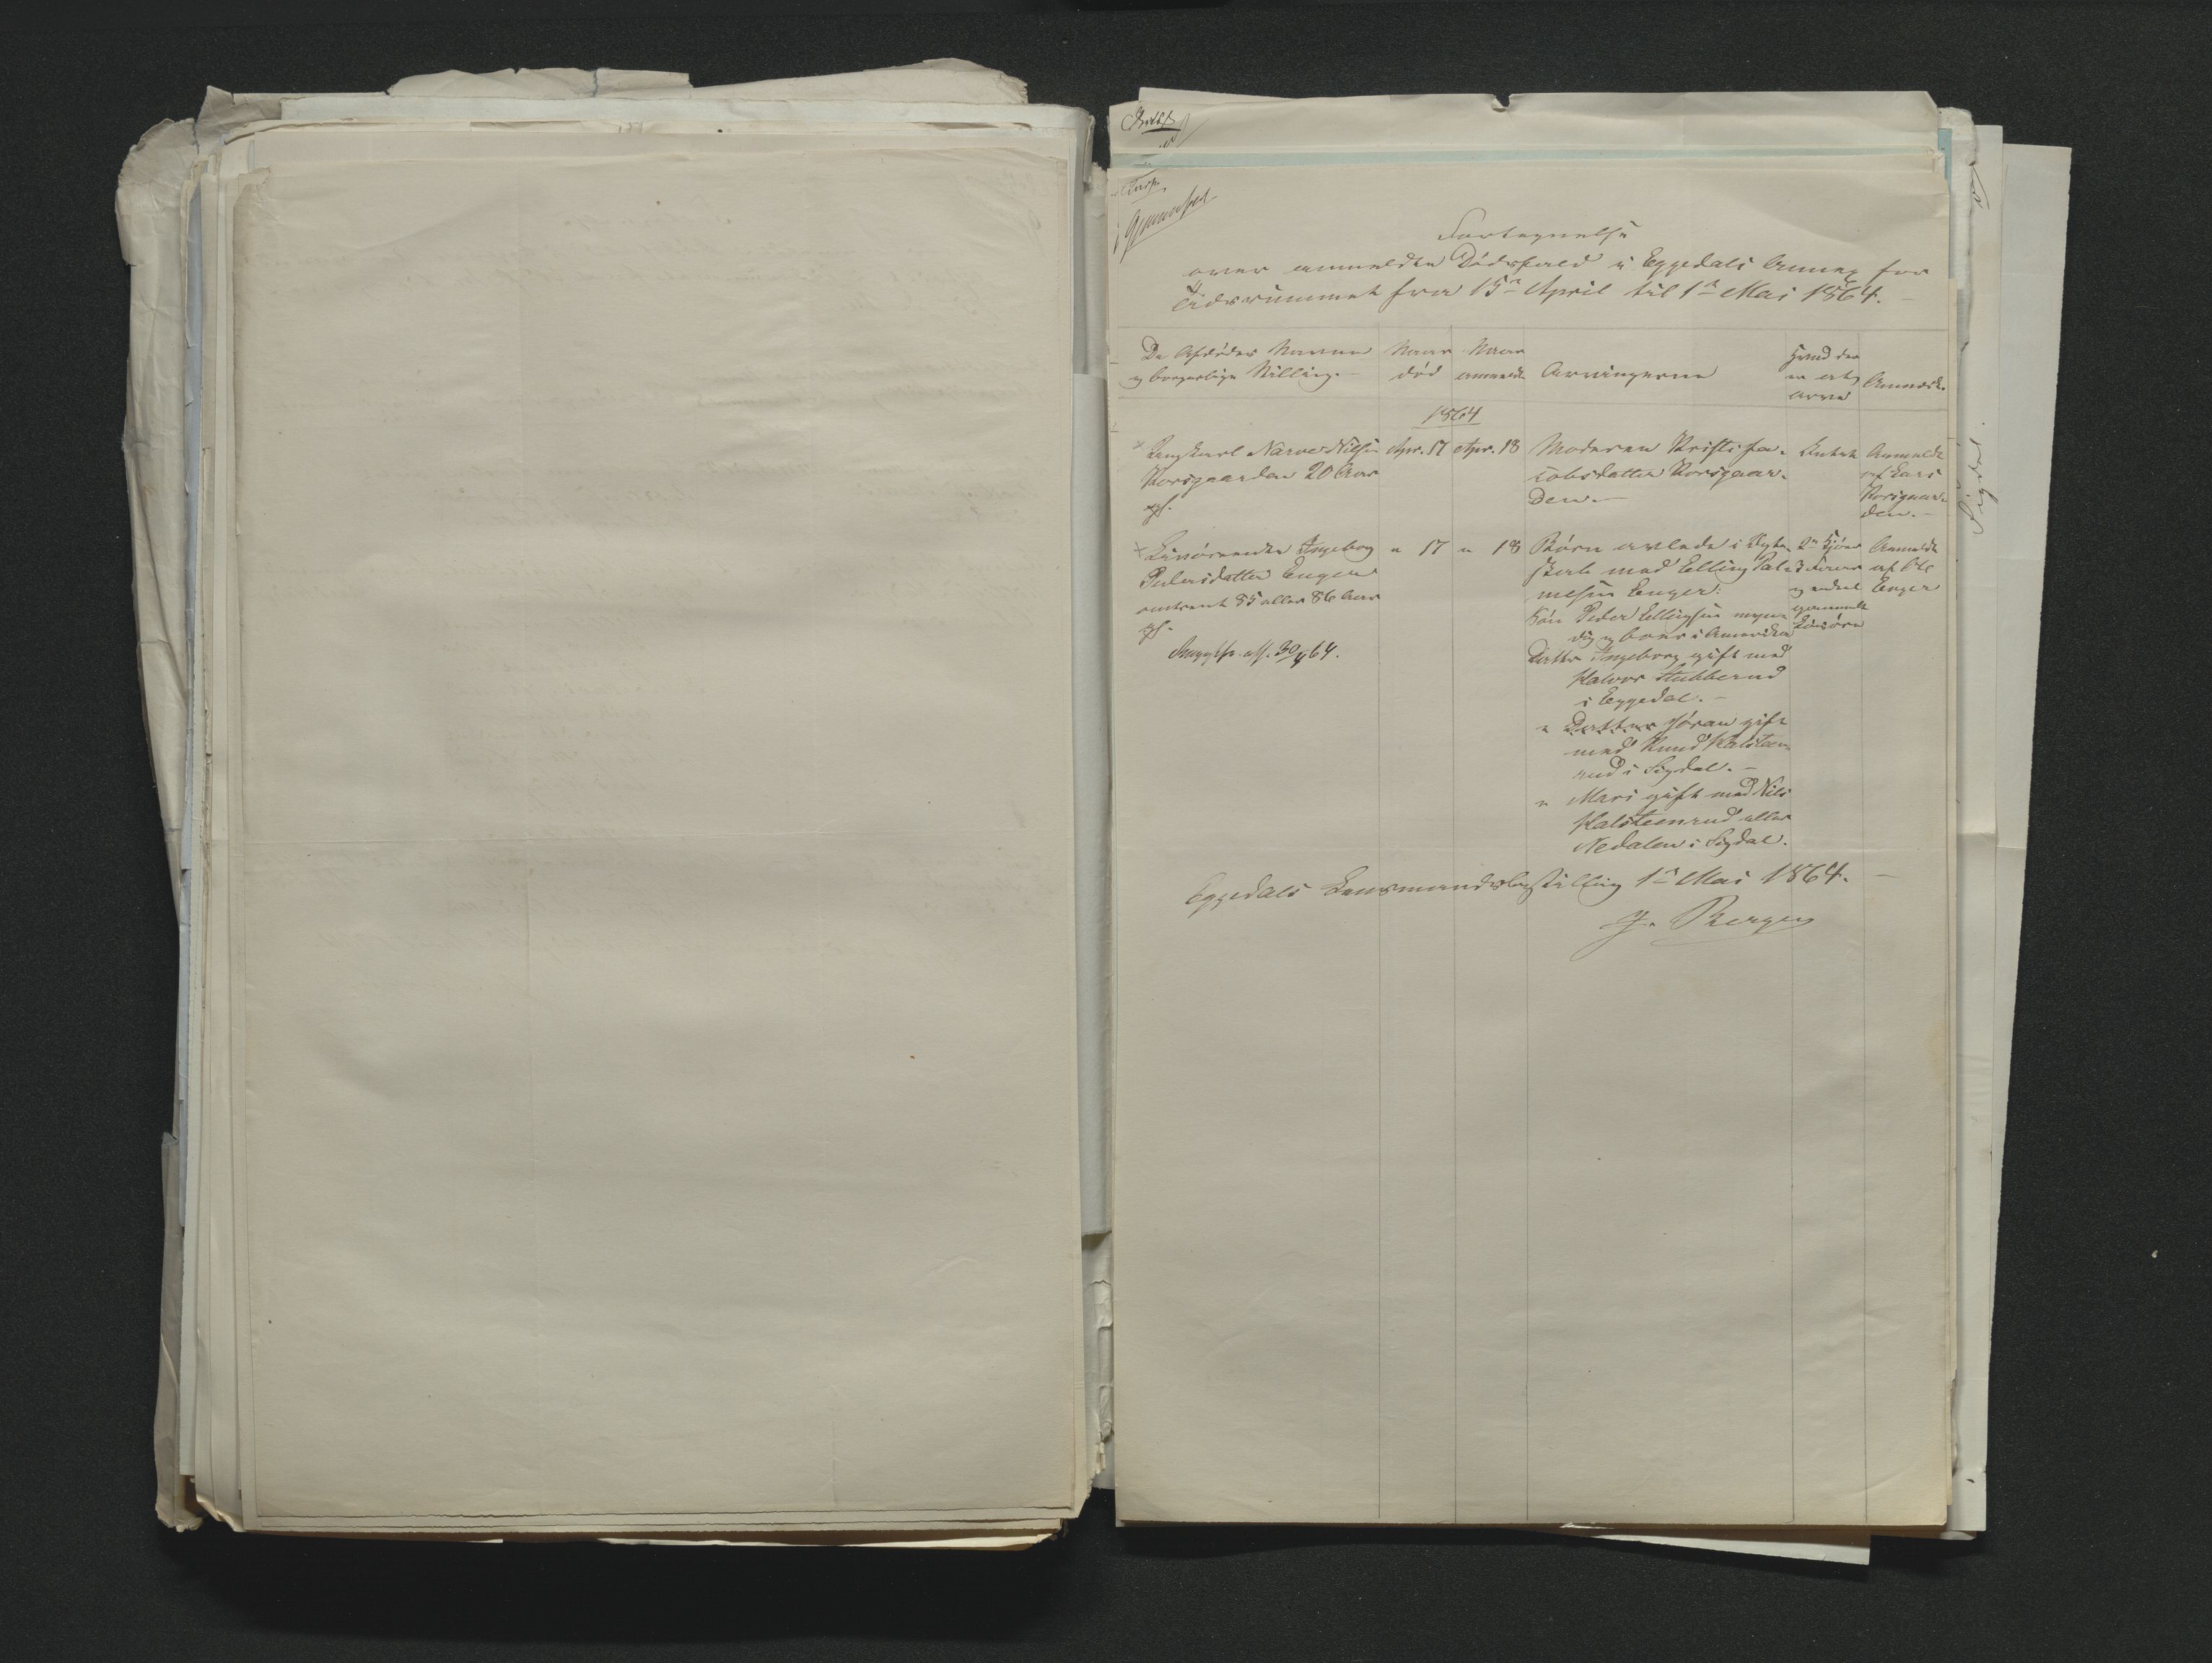 Fortegnelse
over anmeldte Dødsfald i Eggedals Annex for
Tidsrummet fra 15de April til 1ste Mai 1864.
De Afdødes Navne
og borgerlige Stilling.
Naar
død
Naar
anmeldt
Arvingerne
Hvad der
er at
arve
Anmærk.
1864
Ungkarl Narve Nilsen
Korsgaarden 20 Aar
Apr. 17
Apr. 18
Moderen Kristi Ja-
cobsdatter Korsgaar-
den.
Intet
Anmeldt
af Lars
Korsgaar-
den.
Livørenke Ingeborg
Pedersdatter Enger
omtrent 85 eller 86 Aar
" 17
" 18
Børn avlede i Ægte-
skab med Elling Paul-
mesen Enger:
Søn Peder Ellingsen myn-
dig og boer i Amerika
Datter Ingeborg gift med
Halvor Stubberud
i Eggedal.
" Datter Jøran gift
med Knud Kalsteen-
rud i Sigdal.
" Mari gift med Nils
Kalsteenrud eller
Nedalen i Sigdal.
2 Kjør
3 Faar
og endel
gammelt
Indbo
Anmeldt
af Ole
Enger
30/4 64.
Eggedals Lensmandsbestilling 1ste Mai 1864.
J. Bergen
Sigdal.